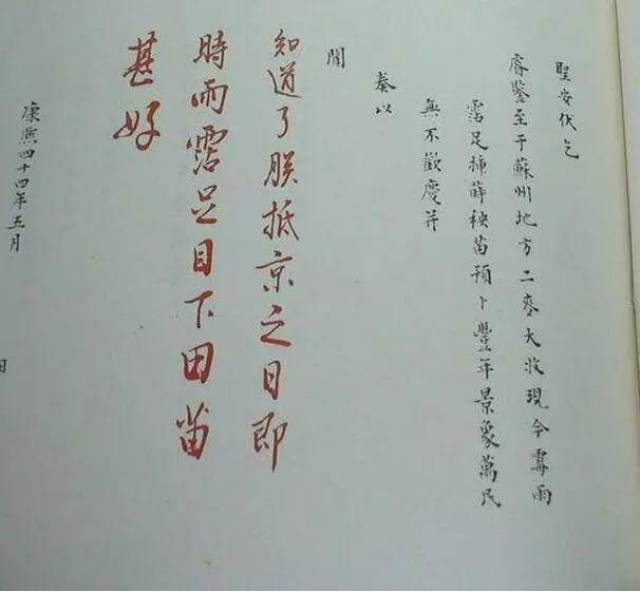 聖安伏乞
睿鑒至于蘇州地方二麥大收現今霉雨
霑足揷蒔秧苗預卜豐年景象萬民
無不歡慶并
奏以
聞
知道了朕抵京之日即
時雨霑足目下田苗
甚好
康熙四十四年五月
日